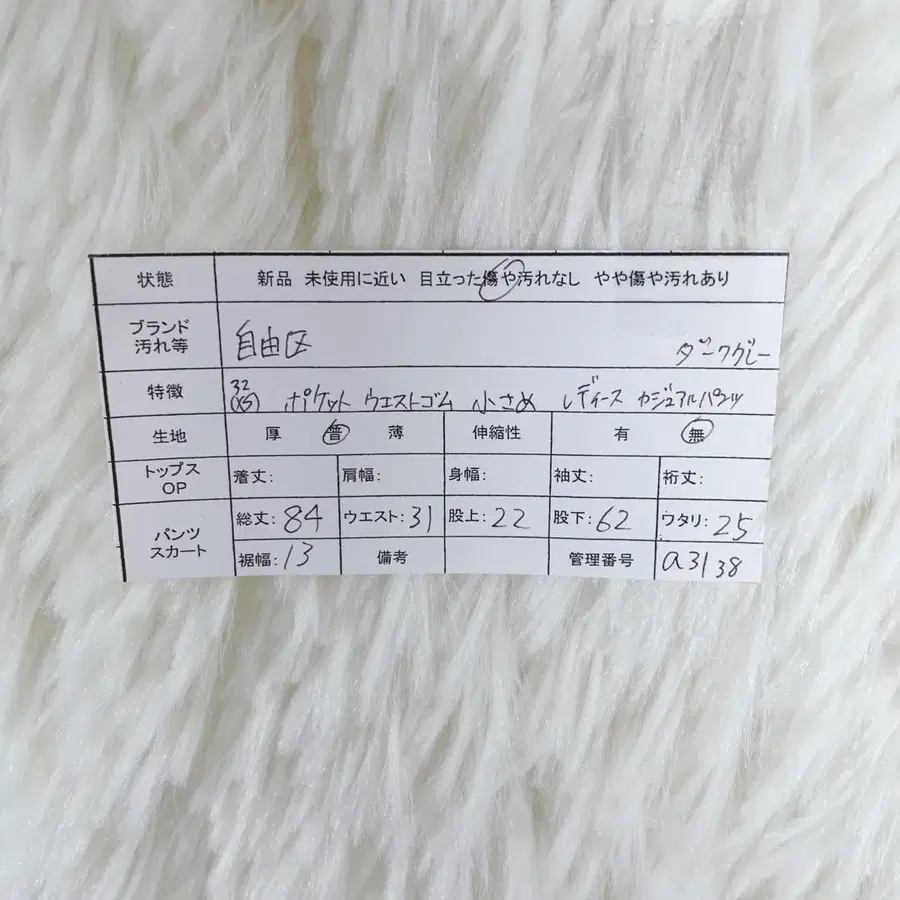 状態 新品 未使用に近い 目立った傷や汚れなし やや傷や汚れあり
ブランド
汚れ等 自由区 ダークグレー
特徴 32
(XS) ポケット ウエストゴム 小さめ レディース カジュアルパンツ
生地 厚 普 薄 伸縮性 有 無
トップス
OP 着丈: 肩幅: 身幅: 袖丈: 裄丈:
パンツ
スカート 総丈:84 ウエスト:31 股上:22 股下:62 ワタリ:25
裾幅:13 備考 管理番号 a3138